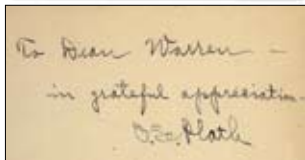 To Dean Warren —
in grateful appreciation.
O. E. Plath